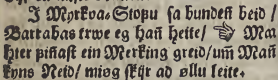 I Mørkva-Stopu sa bundeñ beid /
Barrabas trwe eg hañ heite / ☞ Mar
hter piñast ein Merking greid / um Mañ
kyns Neid / miøg skijr ad øllu leite.